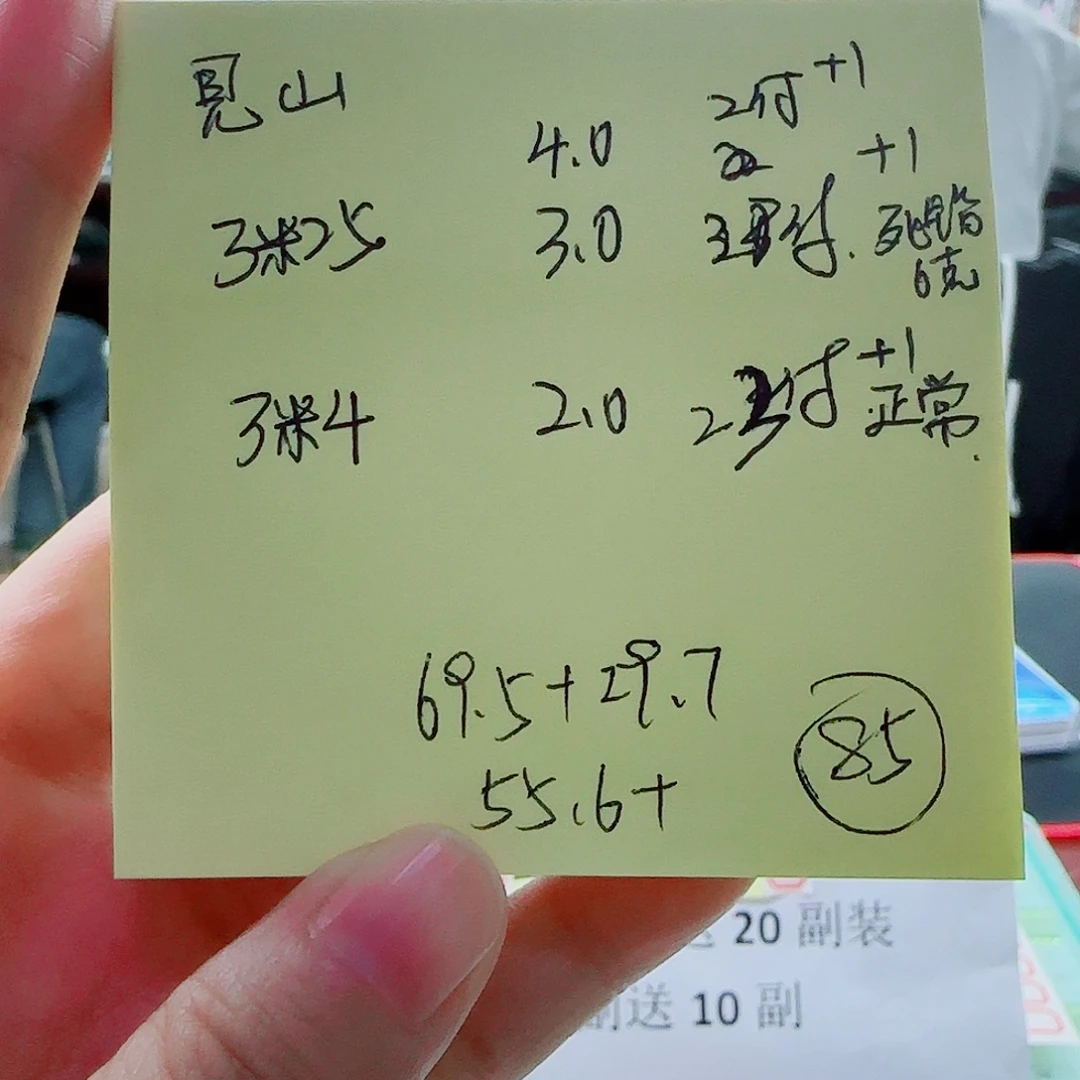 见山
2付 +1
4.0 +1
3米25 3.0 付. 死
6克
3米4 2.0 2 付 +1
正常.
69.5+29.7
55.6+
85
20 副装
副送 10 副